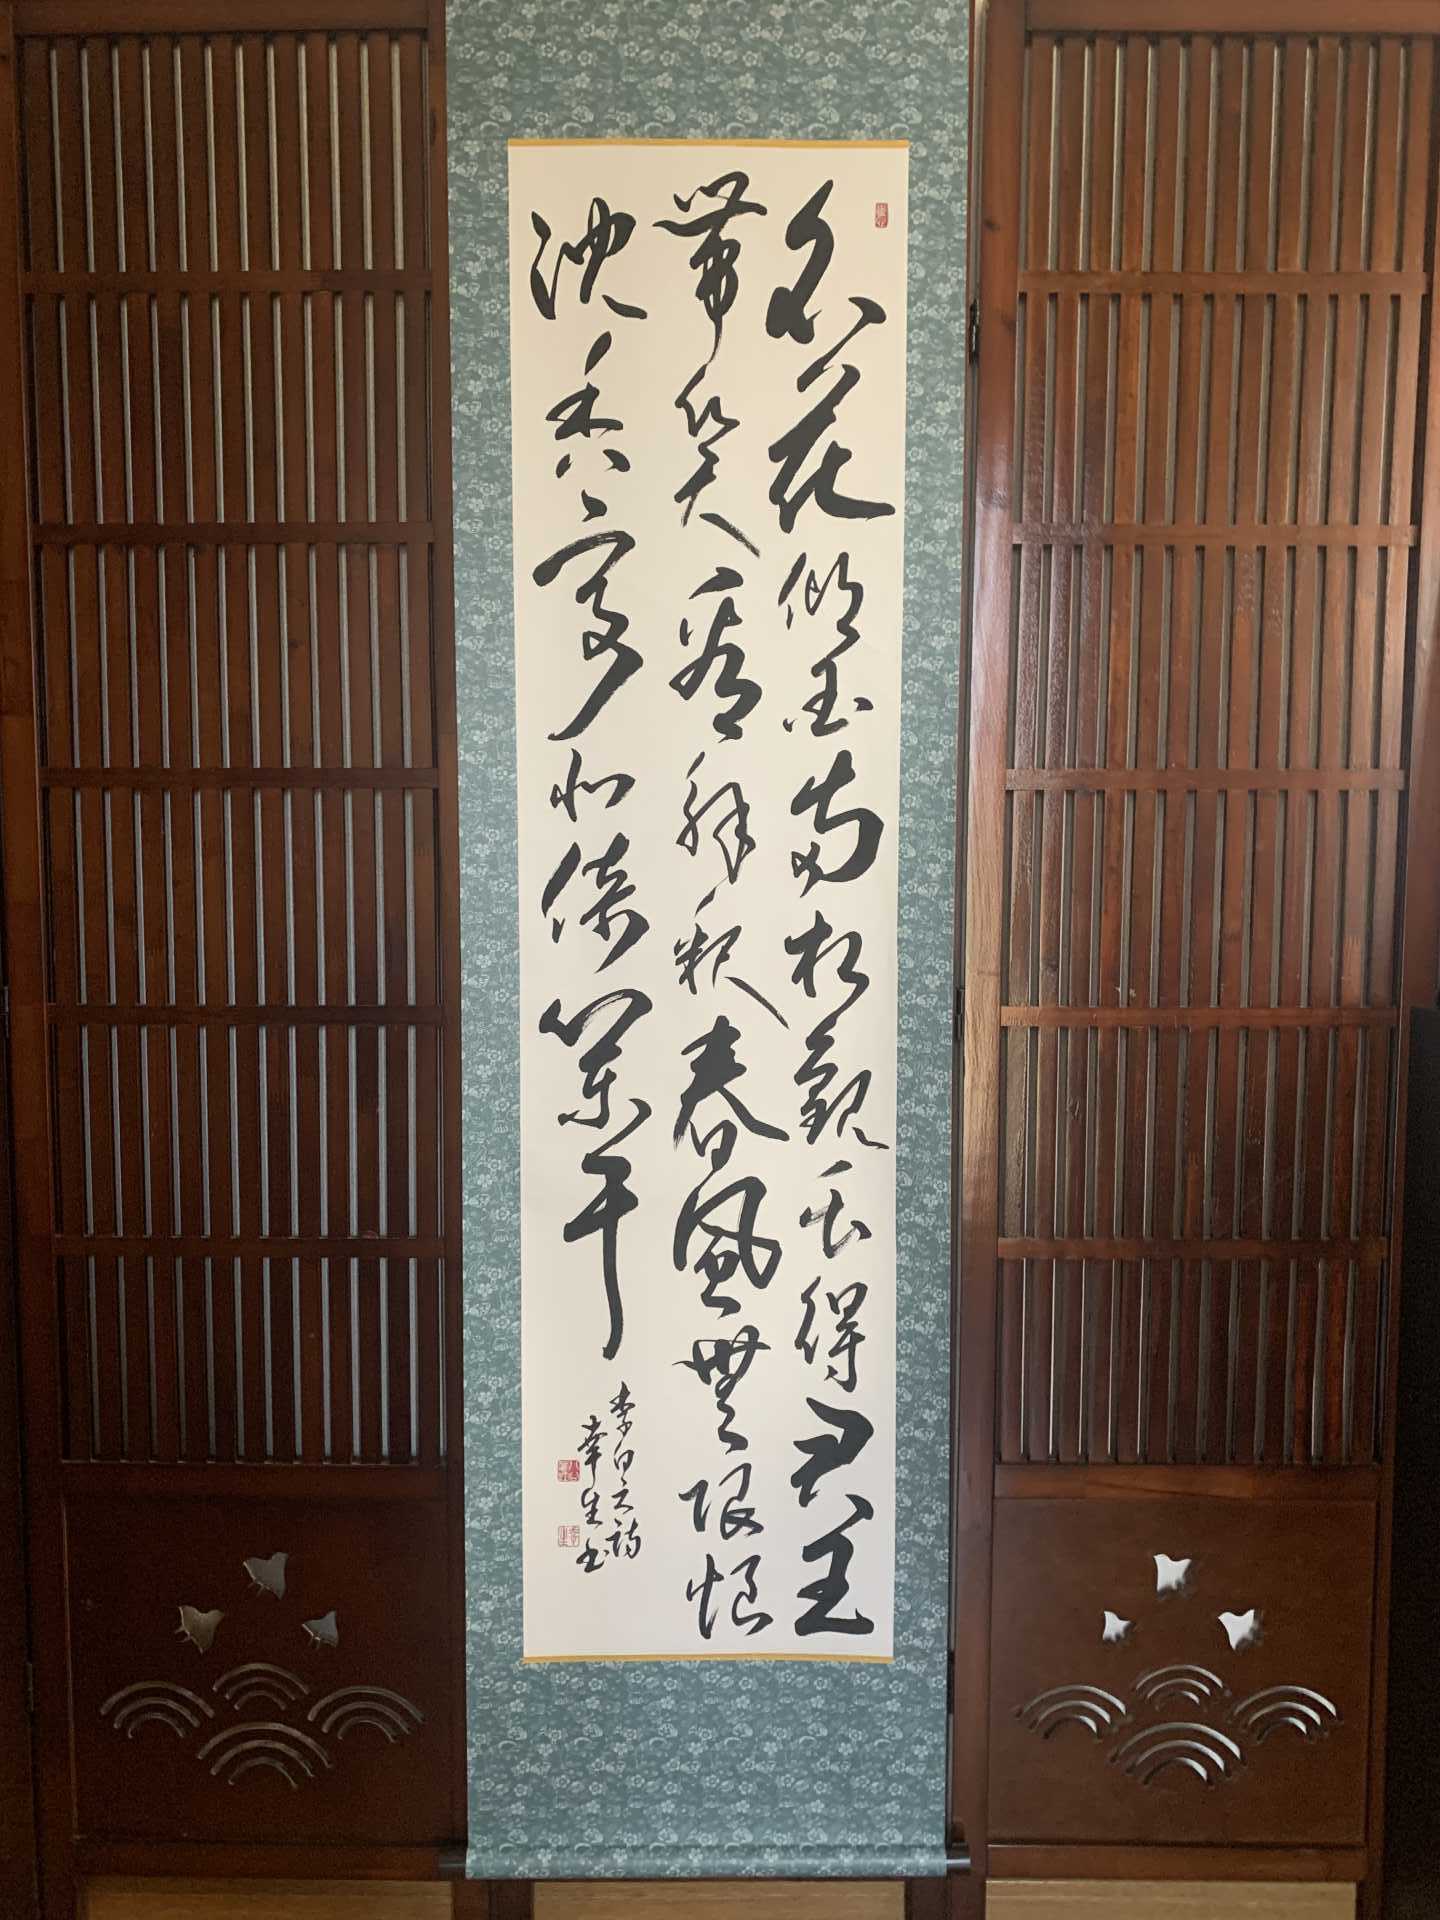 名花傾国両相歓長得君王
帯笑看解釈春風無限恨
沈香亭北倚闌干
李白之詩
幸生書